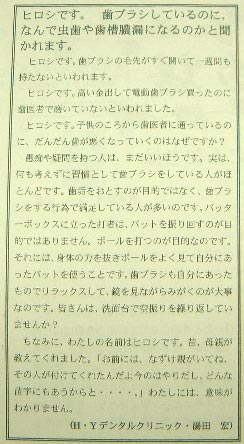 ヒロシです。　歯ブラシしているのに、
なんで虫歯や歯槽膿漏になるのかと聞
かれます。
ヒロシです。歯ブラシの毛先がすぐ開いて一週間も
持たないといわれます。
ヒロシです。高い金出して電動歯ブラシ買ったのに
歯医者で磨いていないといわれました。
ヒロシです。子供のころから歯医者に通っているの
に、だんだん歯が悪くなっていくのはなぜですか?
愚痴や疑問を持つ人は、まだいいほうです。実は、
何も考えずに習慣として歯ブラシをしている人がほ
とんどです。歯垢をおとすのが目的ではなく、歯ブラ
シをする行為で満足している人が多いのです。バッタ
ーボックスに立った打者は、バットを振り回すのが目
的ではありません。ボールを打つのが目的なのです。
それには、身体の力を抜きボールをよく見て自分にあ
ったバットを使うことです。歯ブラシも自分にあった
ものでリラックスして、鏡を見ながらみがくのが大事
なのです。皆さんは、洗面台で空振りを繰り返してい
ませんか?
ちなみに、わたしの名前はヒロシです。昔、母親が
教えてくれました。「お前には、なずけ親がいてね、
その人が付けてくれたんだよ今のはやりだし、どんな
苗字にもあうからと・・・・。」わたしには、意味が
わかりません。
(H・Yデンタルクリニック・湯田　宏)